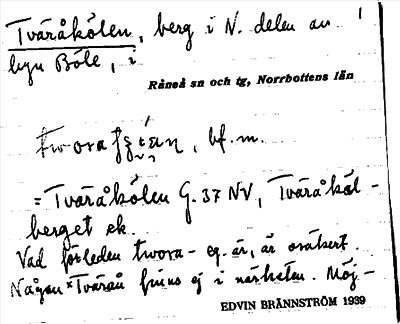 Tväråkölen, berg i N. delen av
byn Böle, i
Råneå sn och tg, Norrbottens län
bf. m.
= Tväråkölen G. 37 NV, Tväråköl-
berget ek.
Vad förleden twora- eg. är, är osäkert.
Någon *Tväraån finns ej i närheten. Möj-
EDVIN BRÄNNSTRÖM 1939